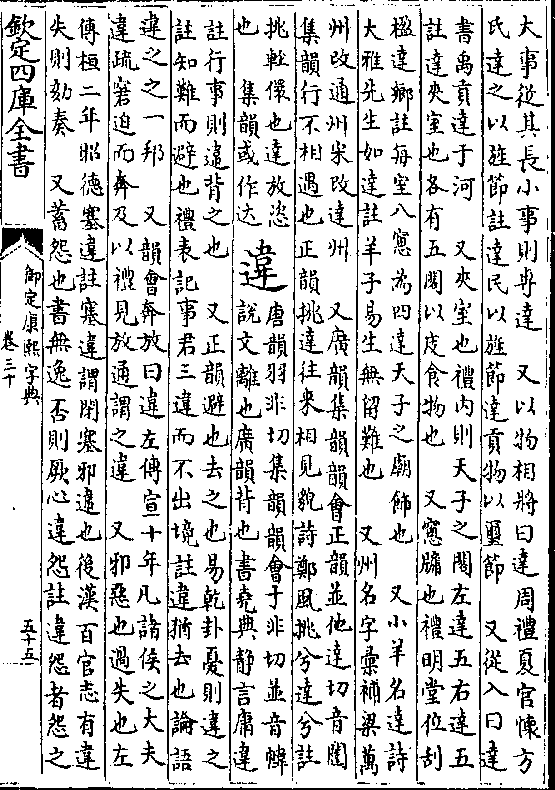 大事從其長小事則專達　又以物相將曰達周禮夏官懷方
氏達之以旌節註達民以旌節達貢物以璽節　又從入曰達
書禹貢達于河　又夾室也禮內則天子之閣左達五右達五
註達夾室也各有五閣以庋食物也　又窻牖也禮明堂位刮
楹達鄉註每室八窻為四達天子之廟飾也　又小羊名達詩
大雅先生如達註羊子易生無留難也　又州名字彙補梁萬
州改通州宋改達州　又廣韻集韻韻會正韻並他達切音闥
集韻行不相遇也正韻挑達往來相見貌詩鄭風挑兮達兮註
挑輕儇也達放恣
也　集韻或作达
違
唐韻羽非切集韻韻會于非切並音幃
說文離也廣韻背也書堯典靜言庸違
註行事則違背之也　又正韻避也去之也易乾卦憂則違之
註知難而避也禮表記事君三違而不出境註違猶去也論語
違之之一邦　又韻會奔放曰違左傳宣十年凡諸侯之大夫
違疏窘迫而奔及以禮見放通謂之違　又邪惡也過失也左
傳桓二年昭德塞違註塞違謂閉塞邪違也後漢百官志有違
失則劾奏　又蓄怨也書無逸否則厥心違怨註違怨者怨之
欽定四庫全書
御定康熙字典
卷三十
五十五